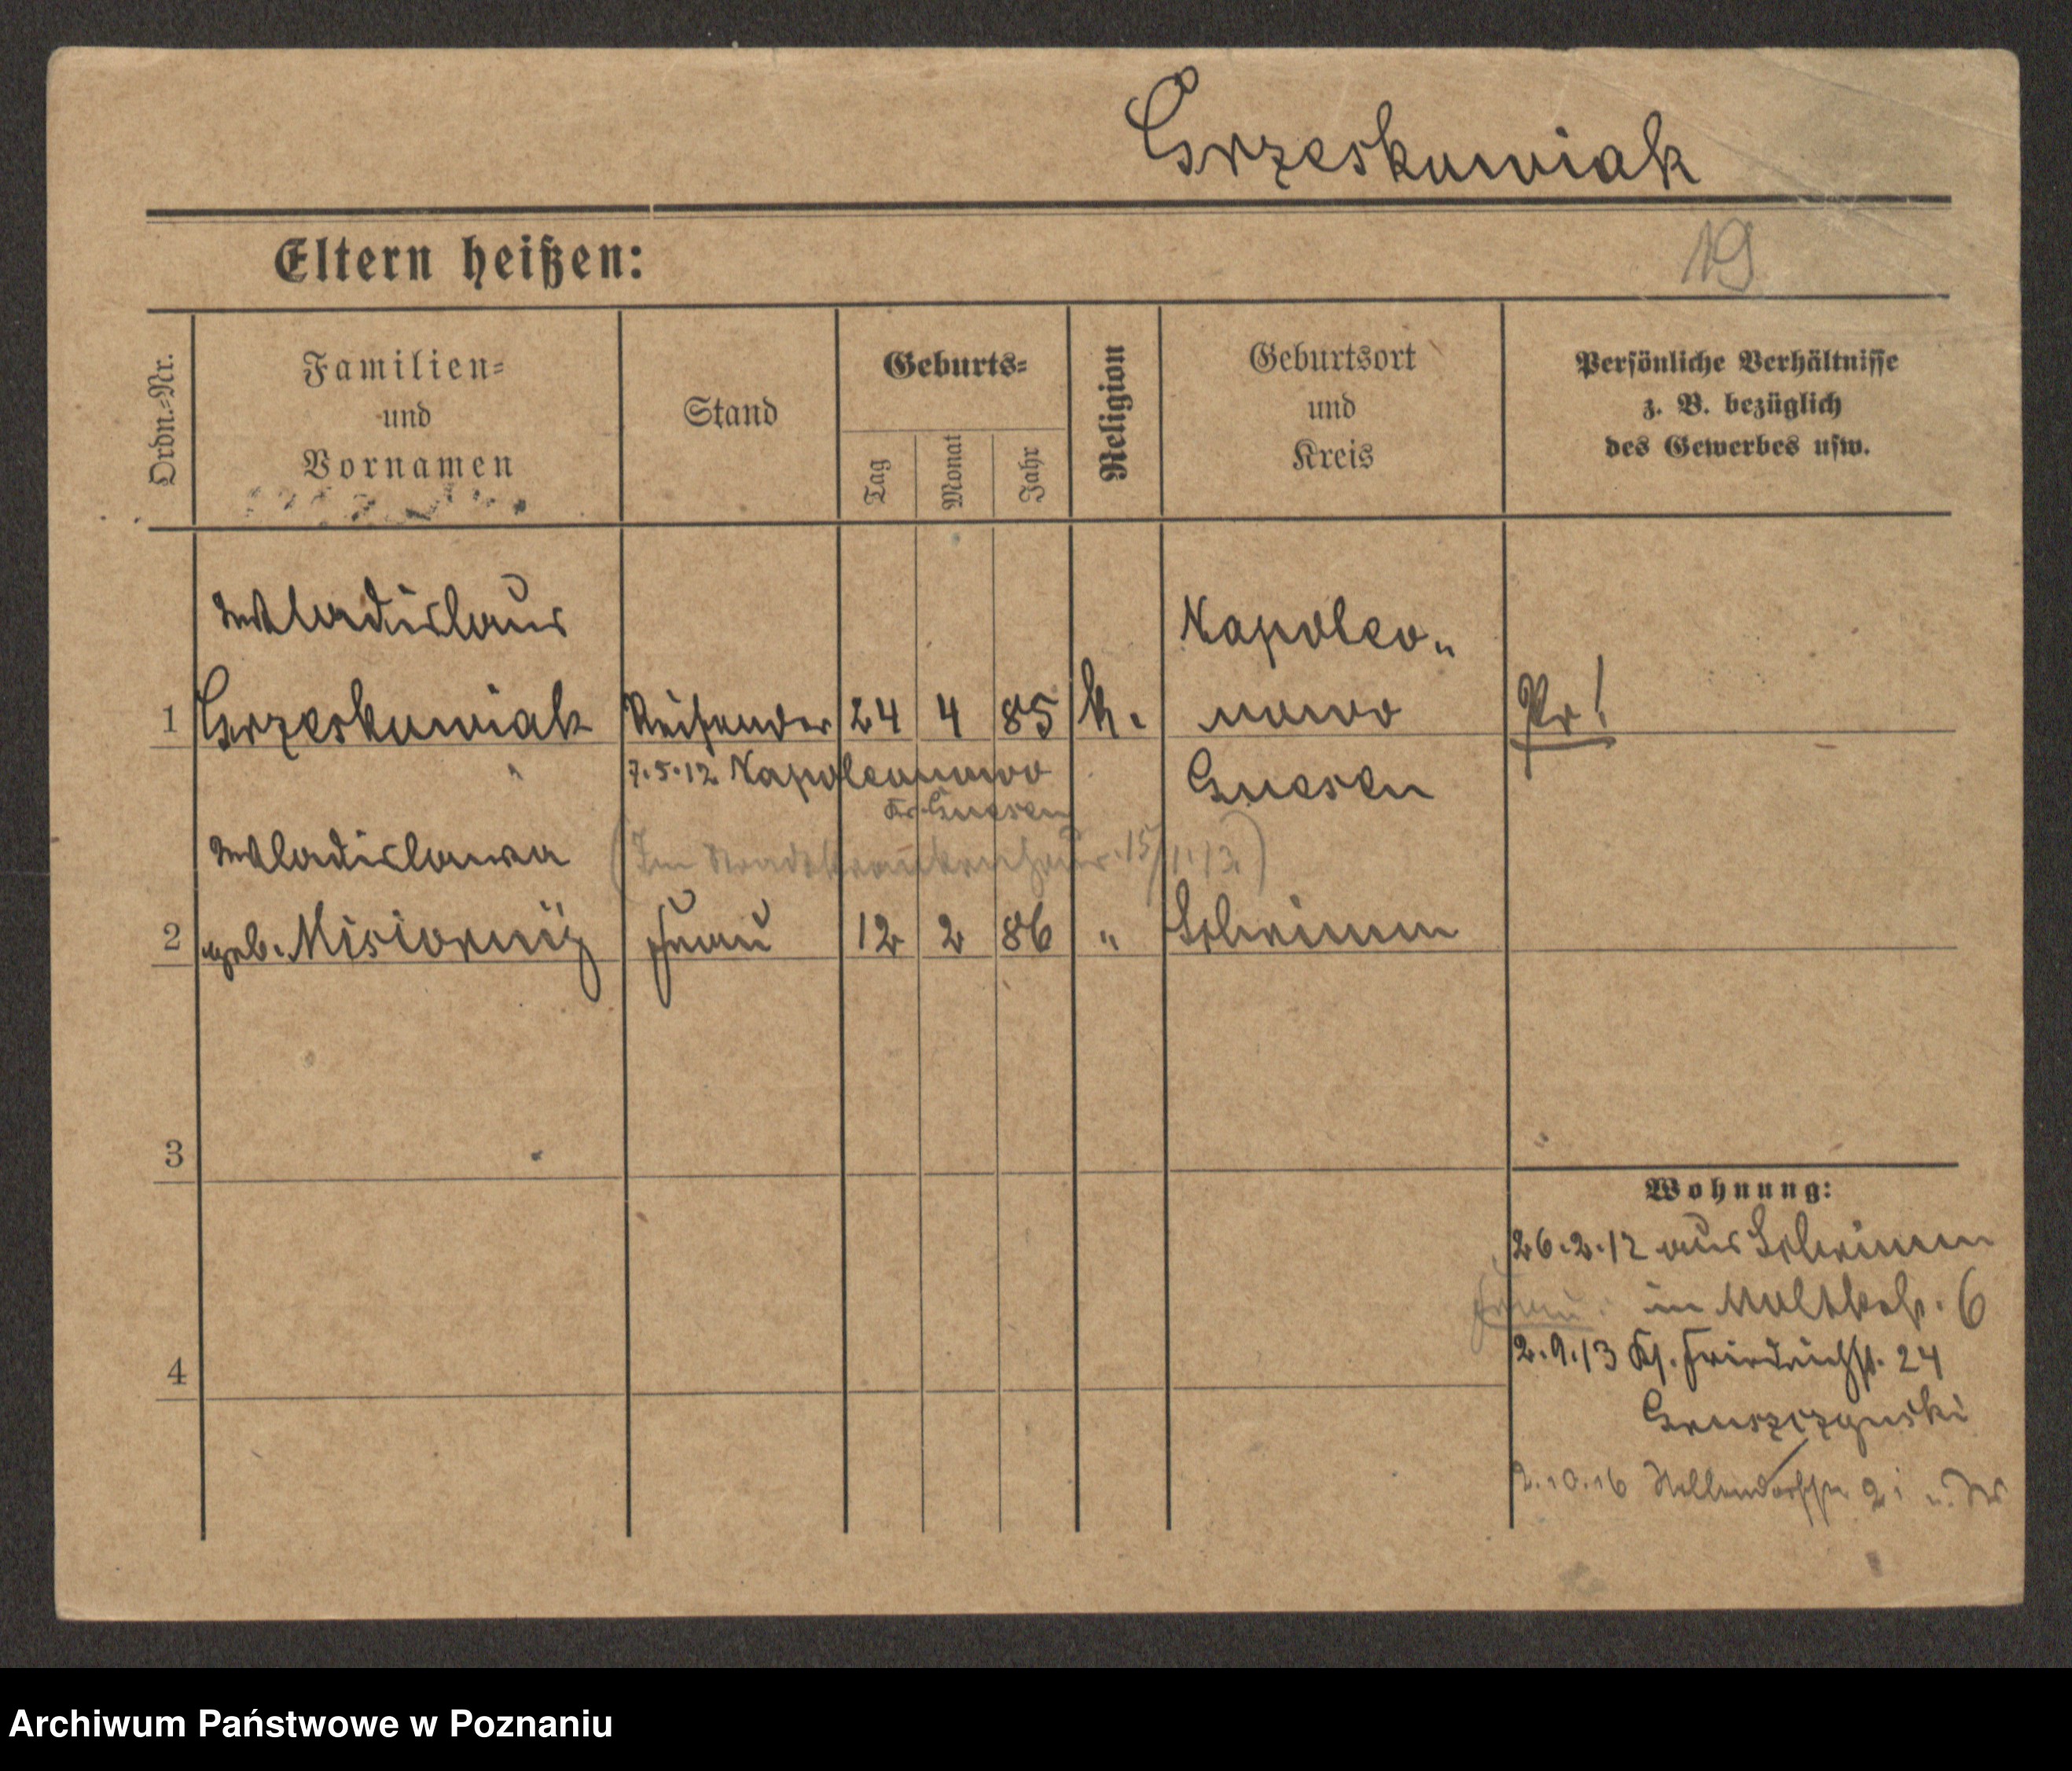 Grzeskowiak
Eltern heißen:
19
Ordn.-Nr.
Familien-
und
Vornamen
Stand
Geburts-
Tag
Monat
Jahr
Religion
Geburtsort
und
Kreis
Persönliche Verhältnisse
z. B. bezüglich
des Gewerbes usw.
Wladislaus
Napoleo-
1 Grzeskowiak Reisender 24 4 85 k. nowo Pr!
7.5.12 Napoleonowo
Gnesen
Kr. Gnesen
Wladislawa
(Im Stadtkrankenhaus. 15/1.13.)
2 geb. Misiorny Frau 12 2 86 " Schrimm
3
Wohnung:
26.2.12 aus Schrimm
Frau. in Moltkestr. 6
2.9.13 Kl. Friedrichst. 24
4
Gruszczynski
2.10.16
Archiwum Państwowe w Poznaniu